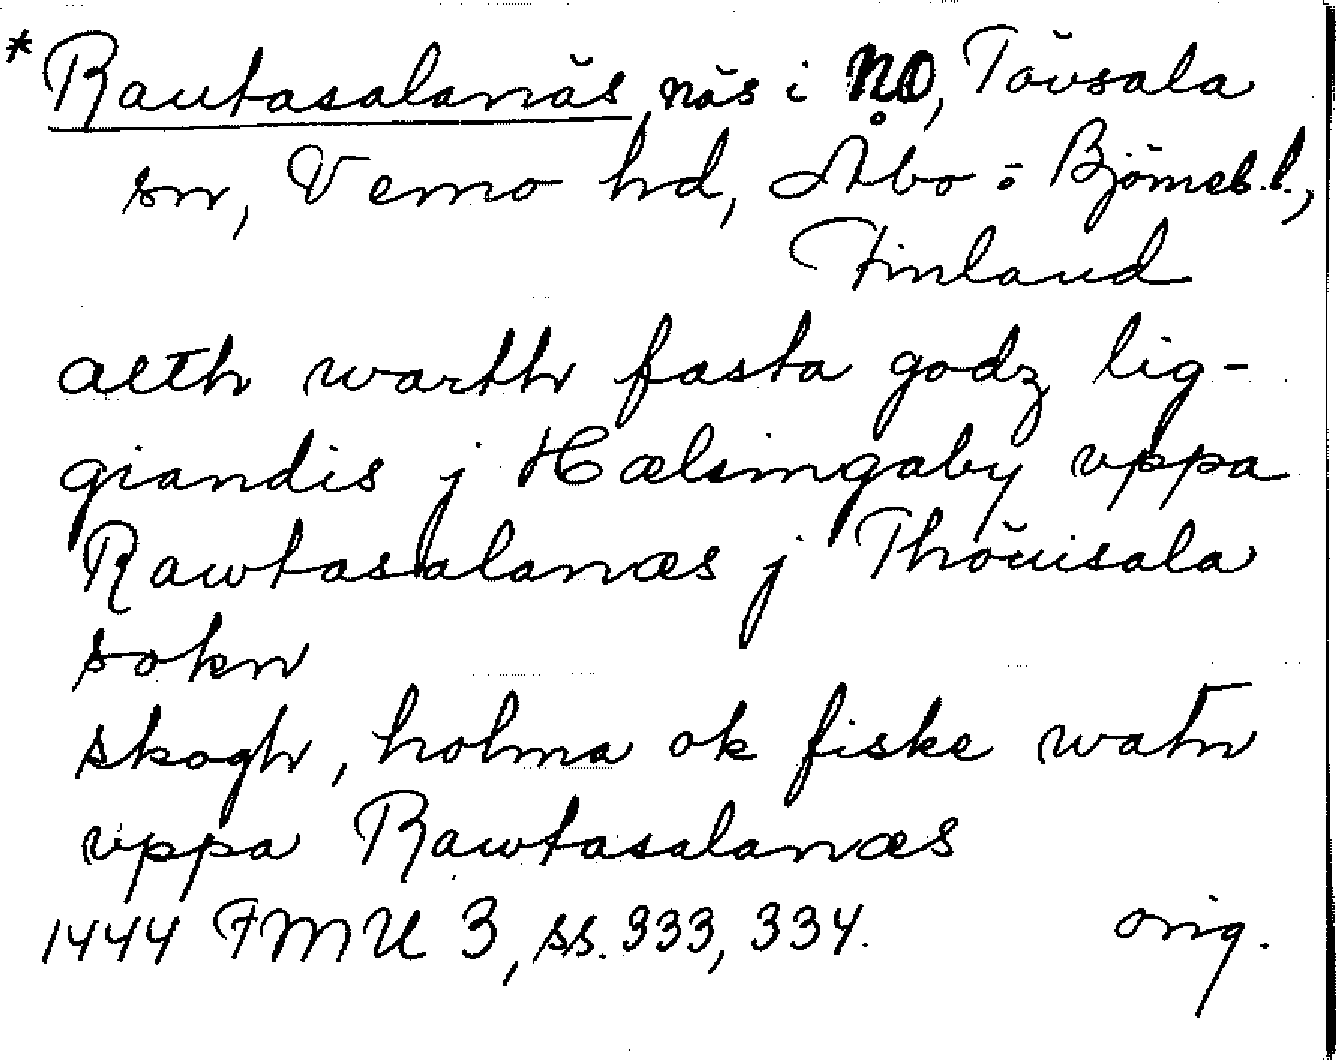 * Rautasalanäs, näs i NO, Tövsala
sn, Vemo hd, Åbo o Björneb. l.,
Finland
alth warth fasta godz lig-
giandis j Hælsingaby vppa
Rawtasalanæs j Thöuisala
sokn
skogh, holma ok fiske watn
vppa Rawtasalanæs
1444 FMU 3, ss. 333, 334. orig.